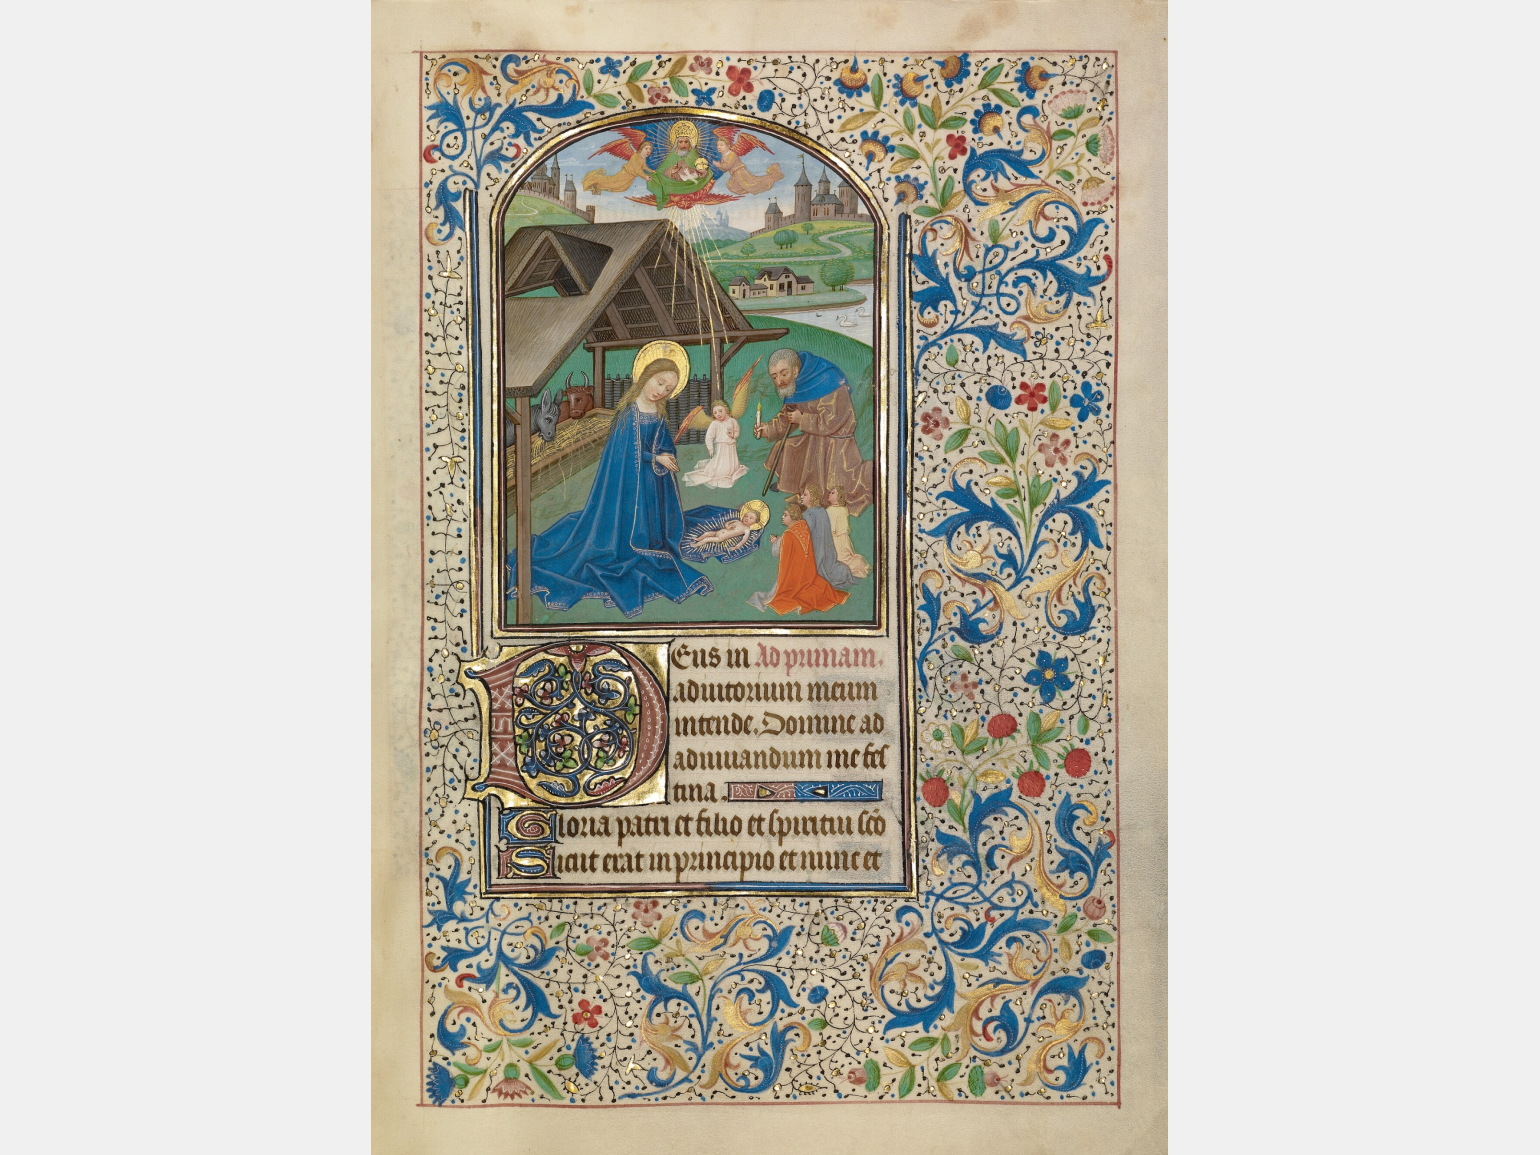 Deus in Ad primam.
adiutorium meum
intende. Domine ad
adiuuandum me fes
tina.
Gloria patri et filio et spiritui scō
Sicut erat in principio et nunc et